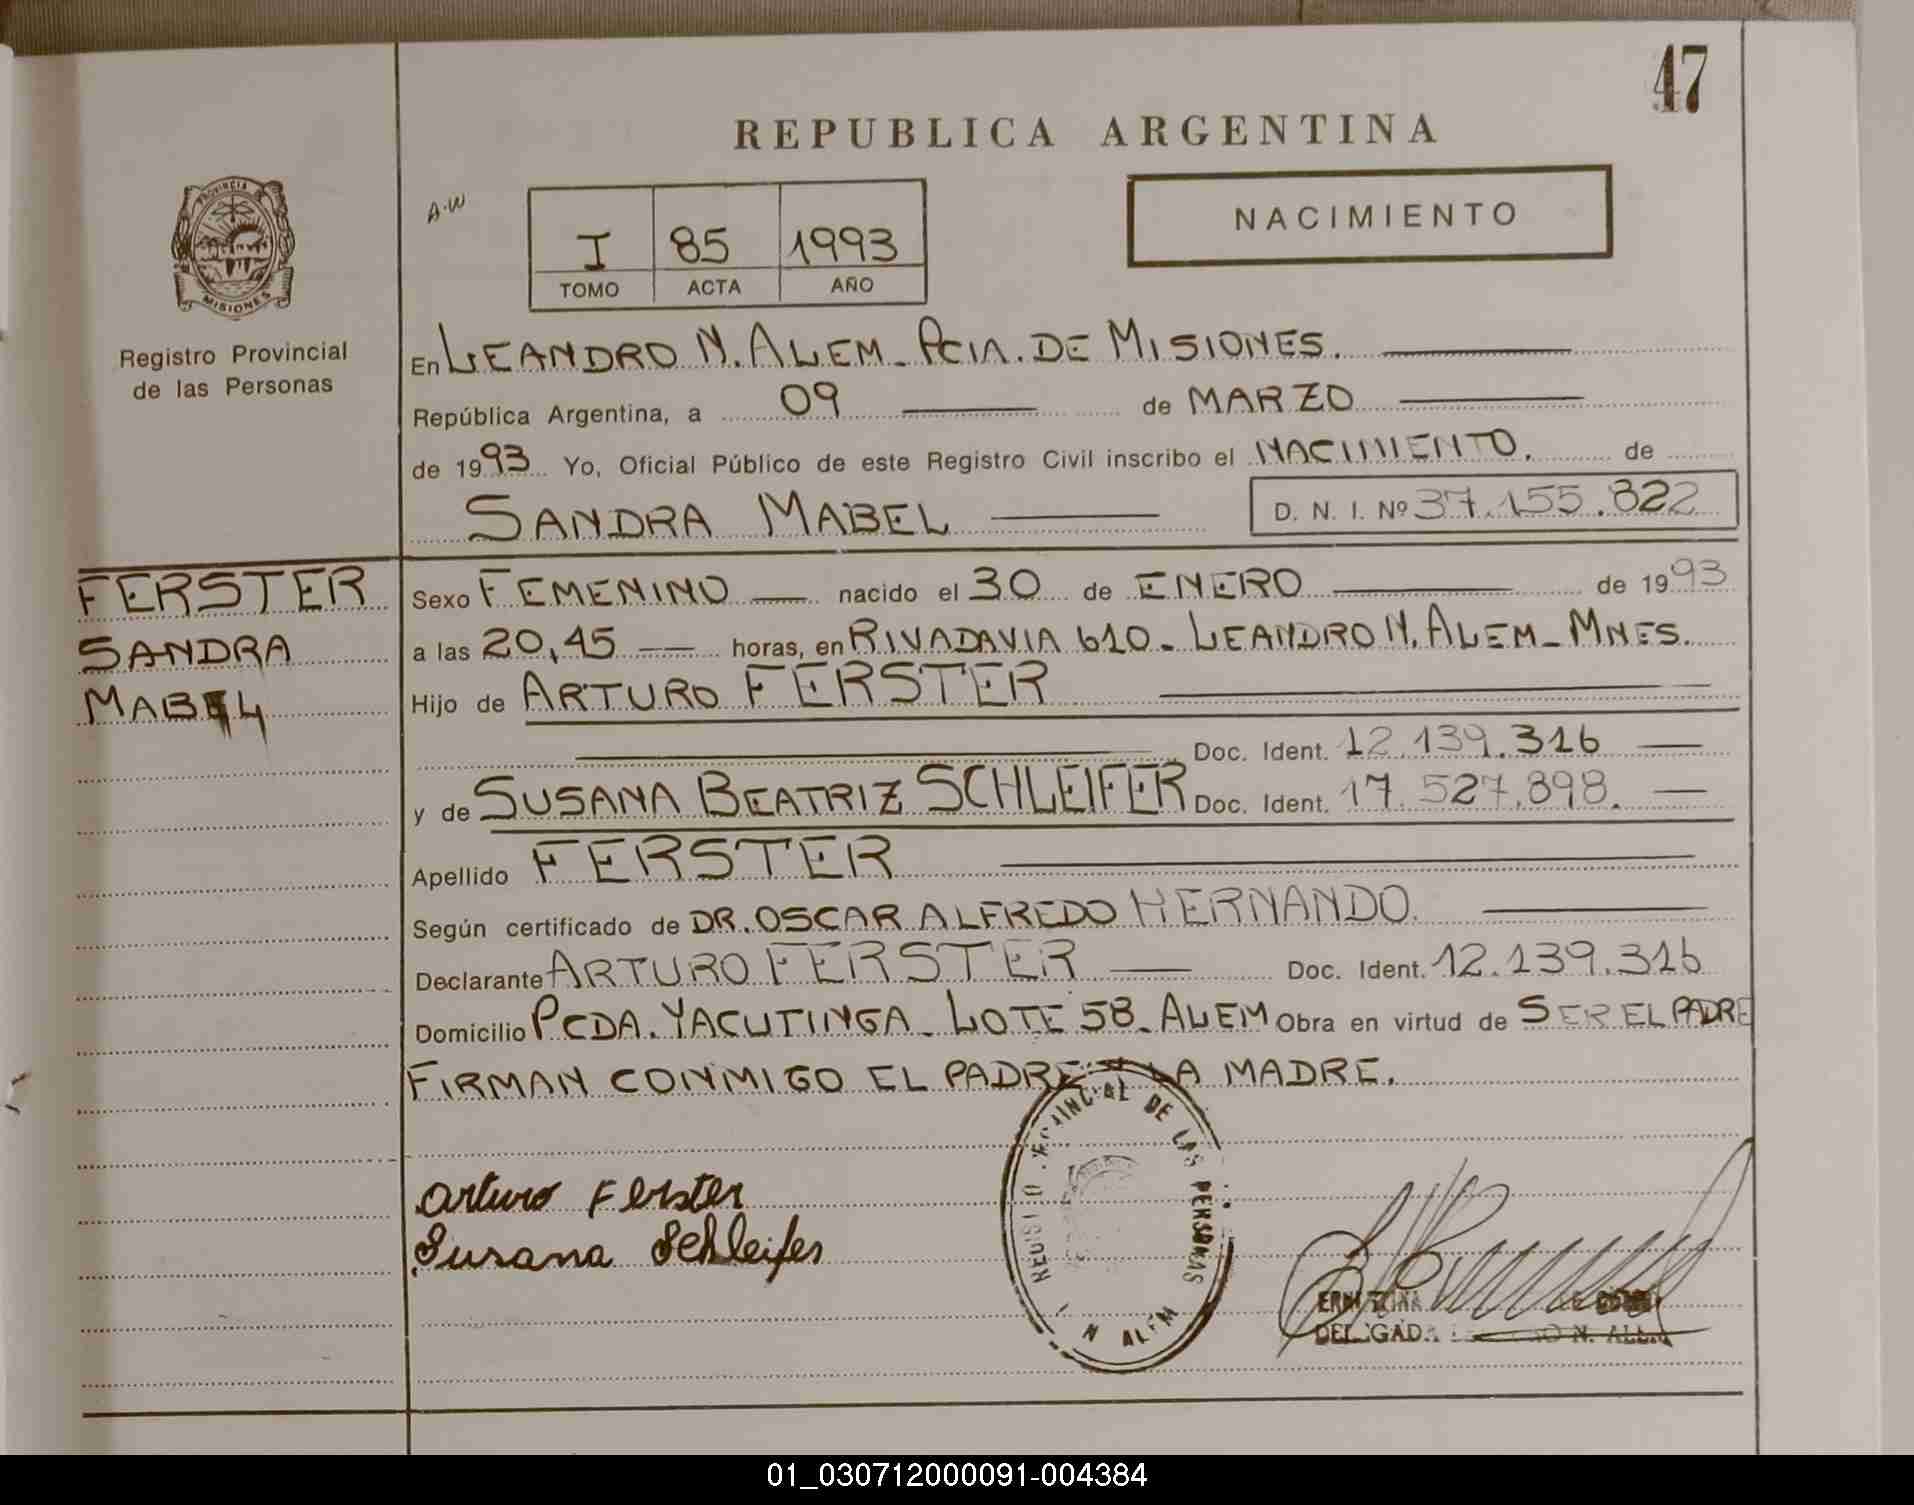 47
REPUBLICA ARGENTINA
PROVINCIA
MISIONES
Registro Provincial
de las Personas
A.W
I 85 1993
TOMO ACTA AÑO
NACIMIENTO
En LEANDRO N. ALEM - PCIA. DE MISIONES.
República Argentina, a 09 de MARZO
de 1993 Yo, Oficial Público de este Registro Civil inscribo el NACIMIENTO. de
SANDRA MABEL D. N. I. Nº 37.155.822
FERSTER
SANDRA
MABEL
Sexo FEMENINO nacido el 30 de ENERO de 1993
a las 20,45 horas, en RIVADAVIA 610 - LEANDRO N. ALEM - MNES.
Hijo de ARTURO FERSTER
Doc. Ident. 12.139.316
y de SUSANA BEATRIZ SCHLEIFER Doc. Ident. 17.527.898.
Apellido FERSTER
Según certificado de DR. OSCAR ALFREDO HERNANDO.
Declarante ARTURO FERSTER Doc. Ident. 12.139.316
Domicilio PCDA. YACUTINGA - LOTE 58 - ALEM Obra en virtud de SER EL PADRE
FIRMAN CONMIGO EL PADRE Y LA MADRE.
DE LAS PERSONAS
N ALEM
Arturo Ferster
Susana Schleifer
01_030712000091-004384